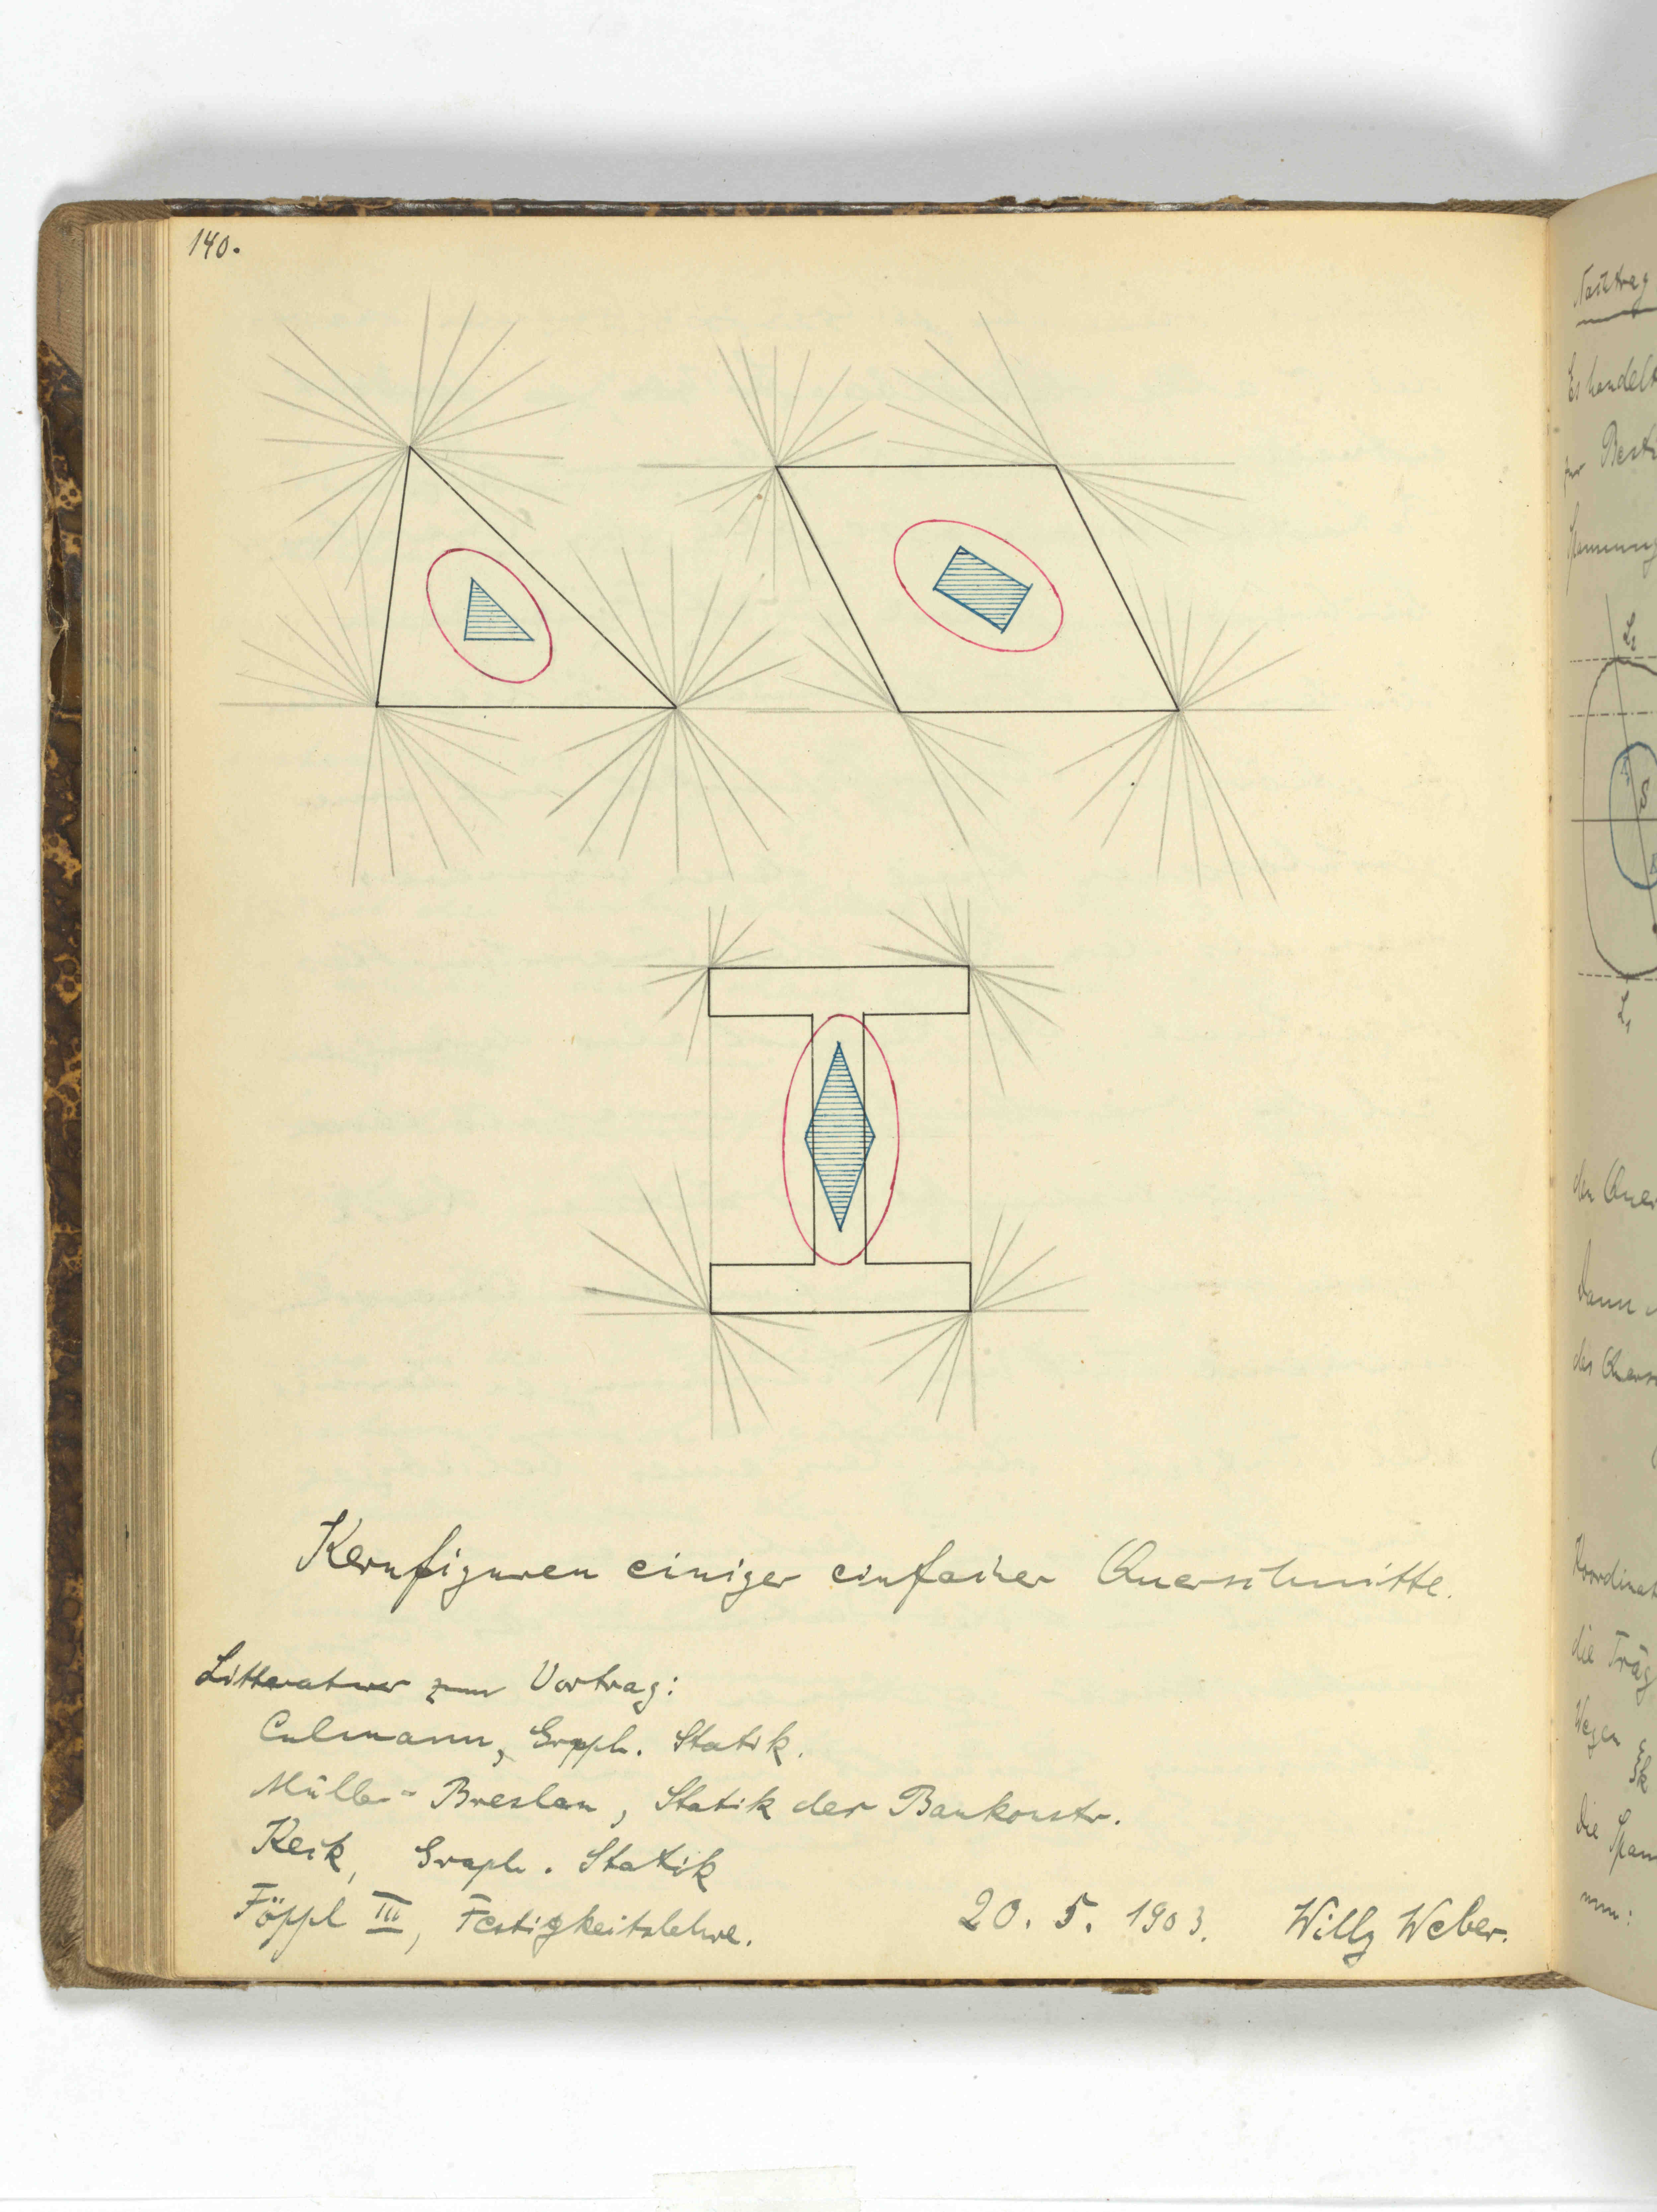 140.
Kernfiguren einiger einfacher Querschnitte.
Litteratur zum Vortrag:
Culmann, Graph. Statik.
Müller-Breslau, Statik der Baukonstr.
Keck, Graph. Statik
Föppl III, Festigkeitslehre.
20. 5. 1903. Willy Weber.
Es handelt
den Quer
Dann
des Quers
Koordinat
die Träg
Wegen
die Span